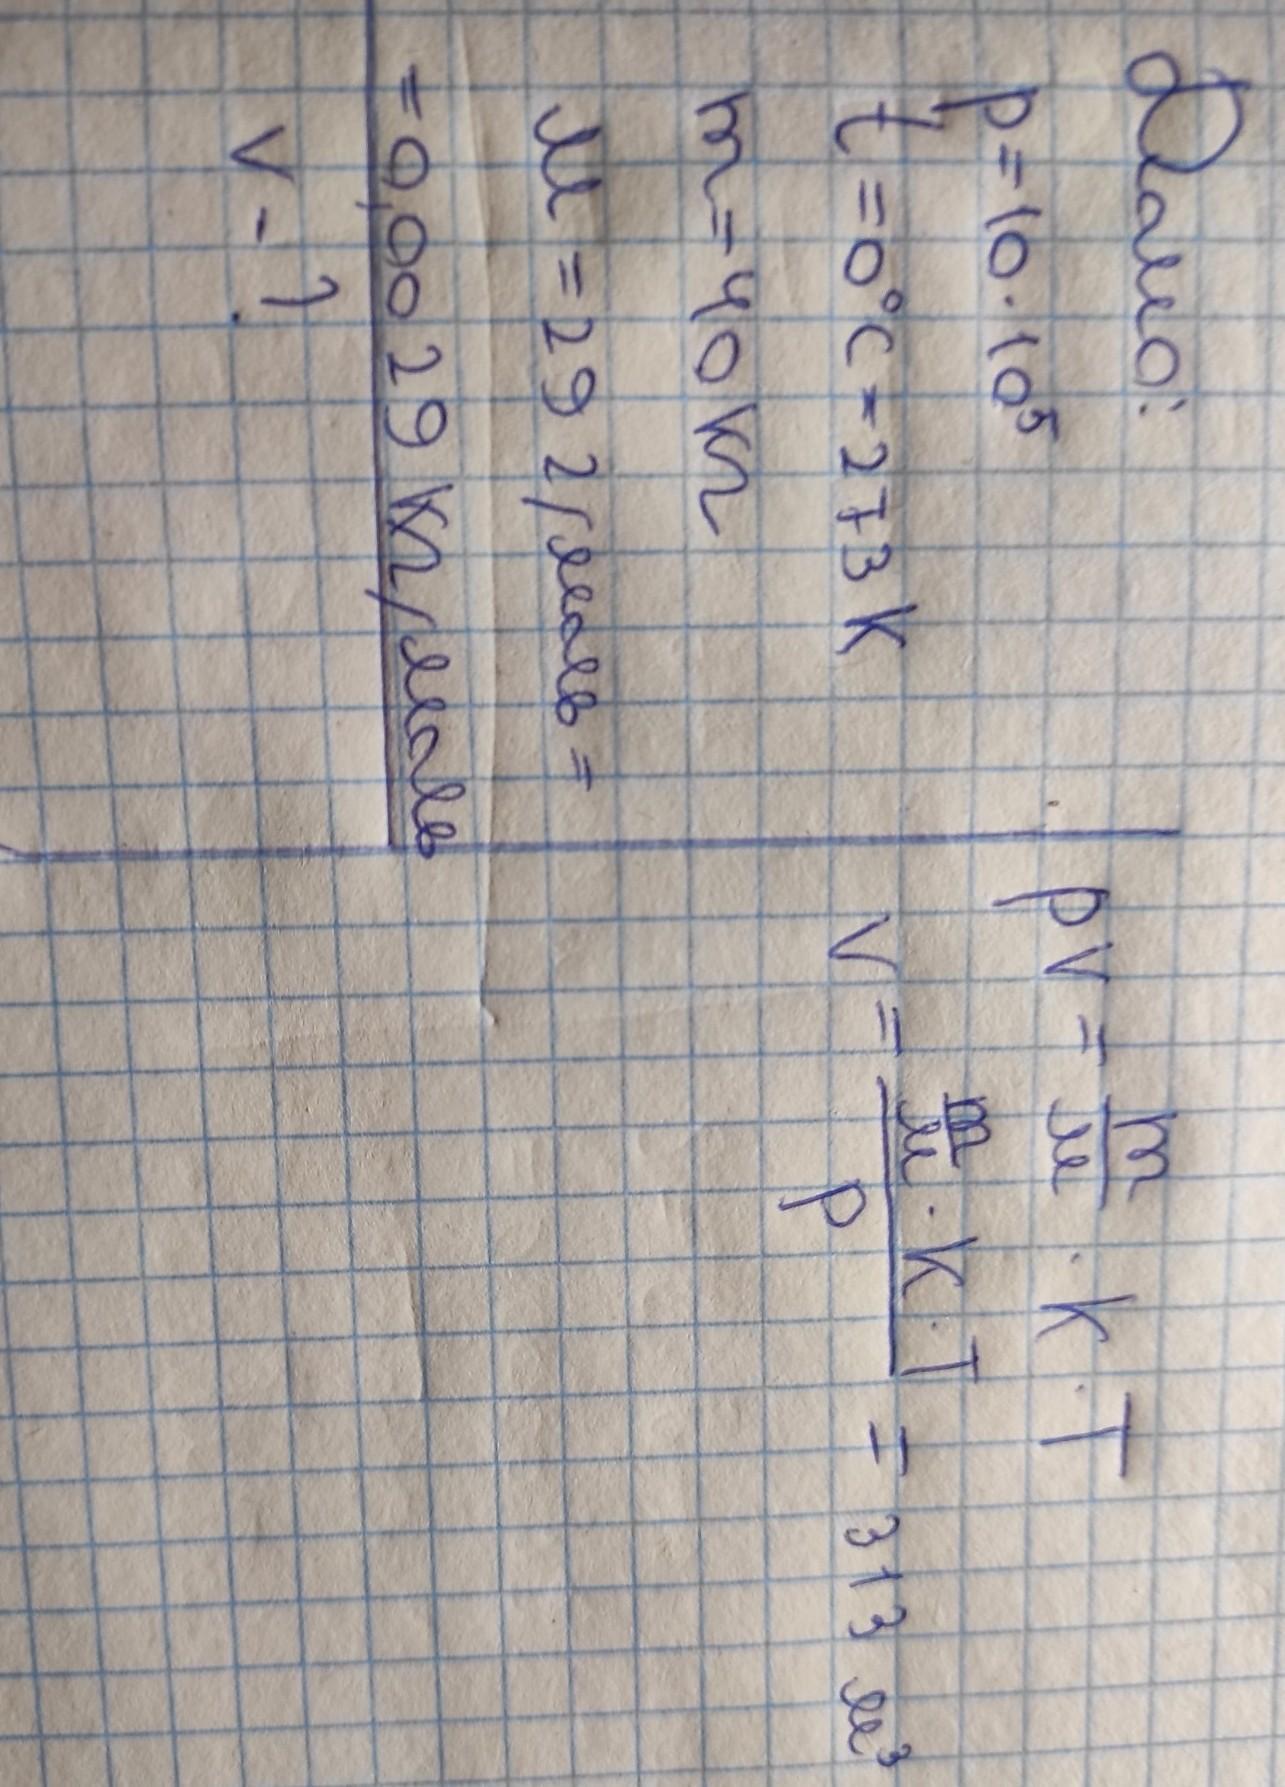 Дано:
p=10·10⁵
t=0°C=273K
m=40кг
M=29 г/моль=
=0,0029кг/моль
V-?
pV = m/M · k · T
V = (m/M · k · T)/p = 313 м³